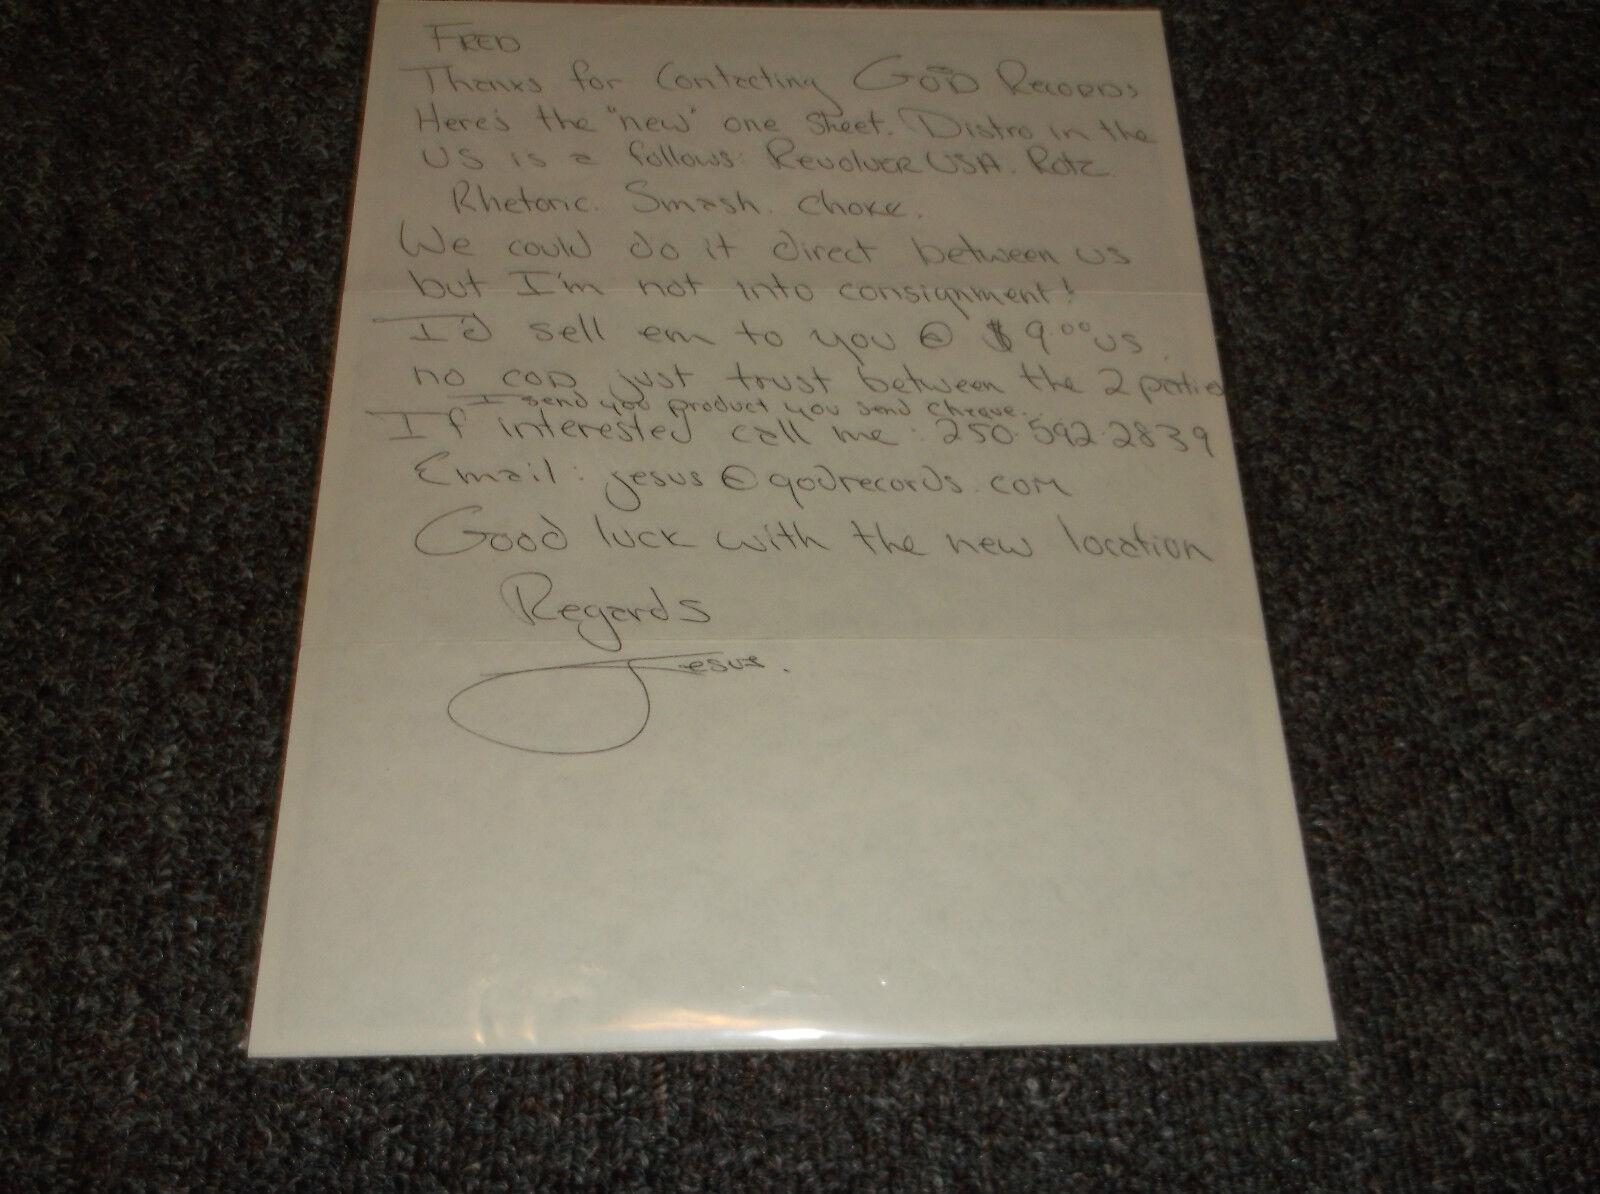 FRED
Thanks for Contacting GOD Records
Here's the "new" one sheet. Distro in the
US is a follows: Revolver USA. Rotz
Rhetoric. Smash. Choke.
We could do it direct between us
but I'm not into consignment!
I'd sell em to you @ $9.00 US.
no COD just trust between the 2 parties
I send you product you send cheque.
If interested call me: 250.592.2839
Email: jesus@godrecords.com
Good luck with the new location
Regards
Jesus.